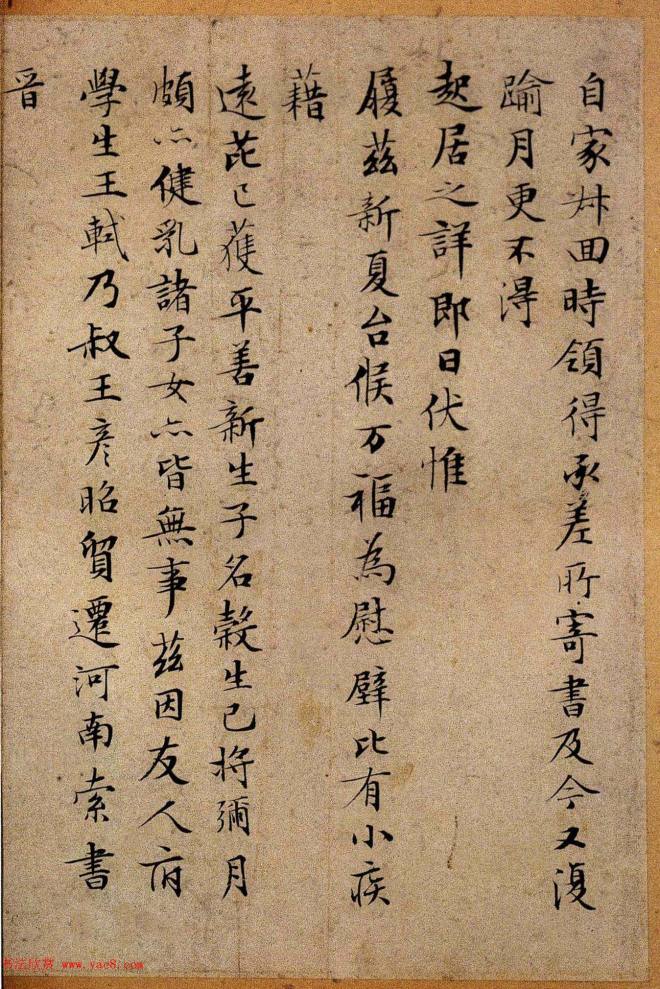 自家叔回時領得承差所寄書及今又復
踰月更不得
起居之詳即日伏惟
履茲新夏台候万福為慰璧比有小疾
藉
遠芘已獲平善新生子名穀生已將彌月
頗亦健乳諸子女亦皆無事茲因友人府
學生王軾乃叔王彦昭貿遷河南索書
晉
书法欣赏 www.yac8.com